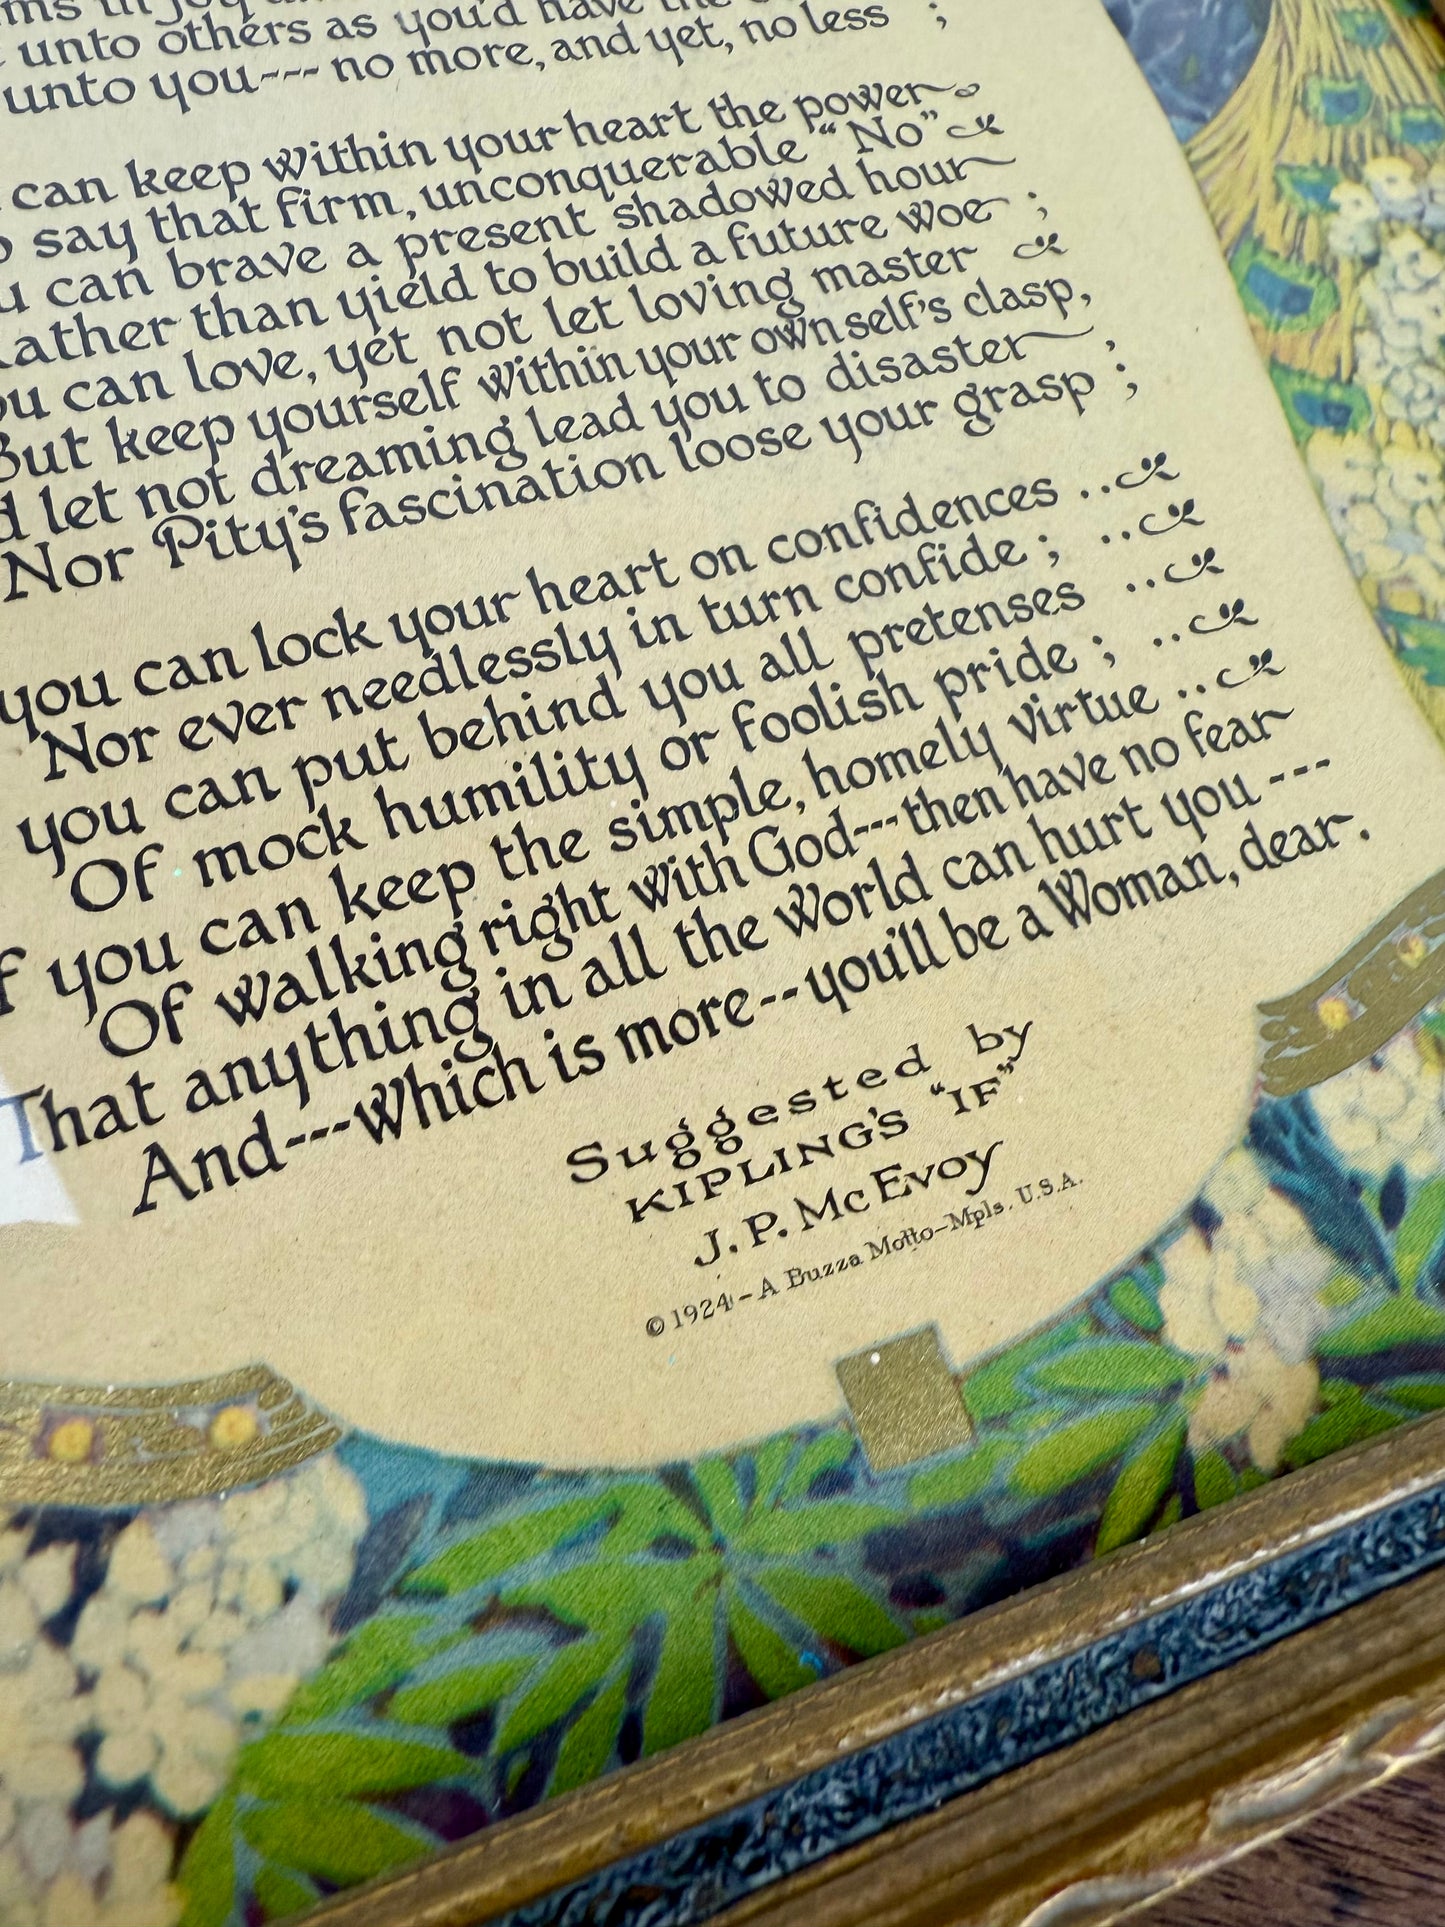 in joy
unto others as you'd have the
unto you--- no more, and yet, no less ;
can keep within your heart the power
say that firm, unconquerable "No"
can brave a present shadowed hour
than yield to build a future woe ;
can love, yet not let loving master
But keep yourself within your own self's clasp,
let not dreaming lead you to disaster ,
Nor Pity's fascination loose your grasp ;
you can lock your heart on confidences ..
Nor ever needlessly in turn confide ; ..
you can put behind you all pretenses ..
Of mock humility or foolish pride ; ..
you can keep the simple, homely virtue ..
Of walking right with God---then have no fear
That anything in all the world can hurt you ---
And---which is more--you'll be a Woman, dear.
Suggested by
KIPLING'S "IF"
J. P. McEvoy
© 1924 - A Buzza Motto - Mpls. U.S.A.